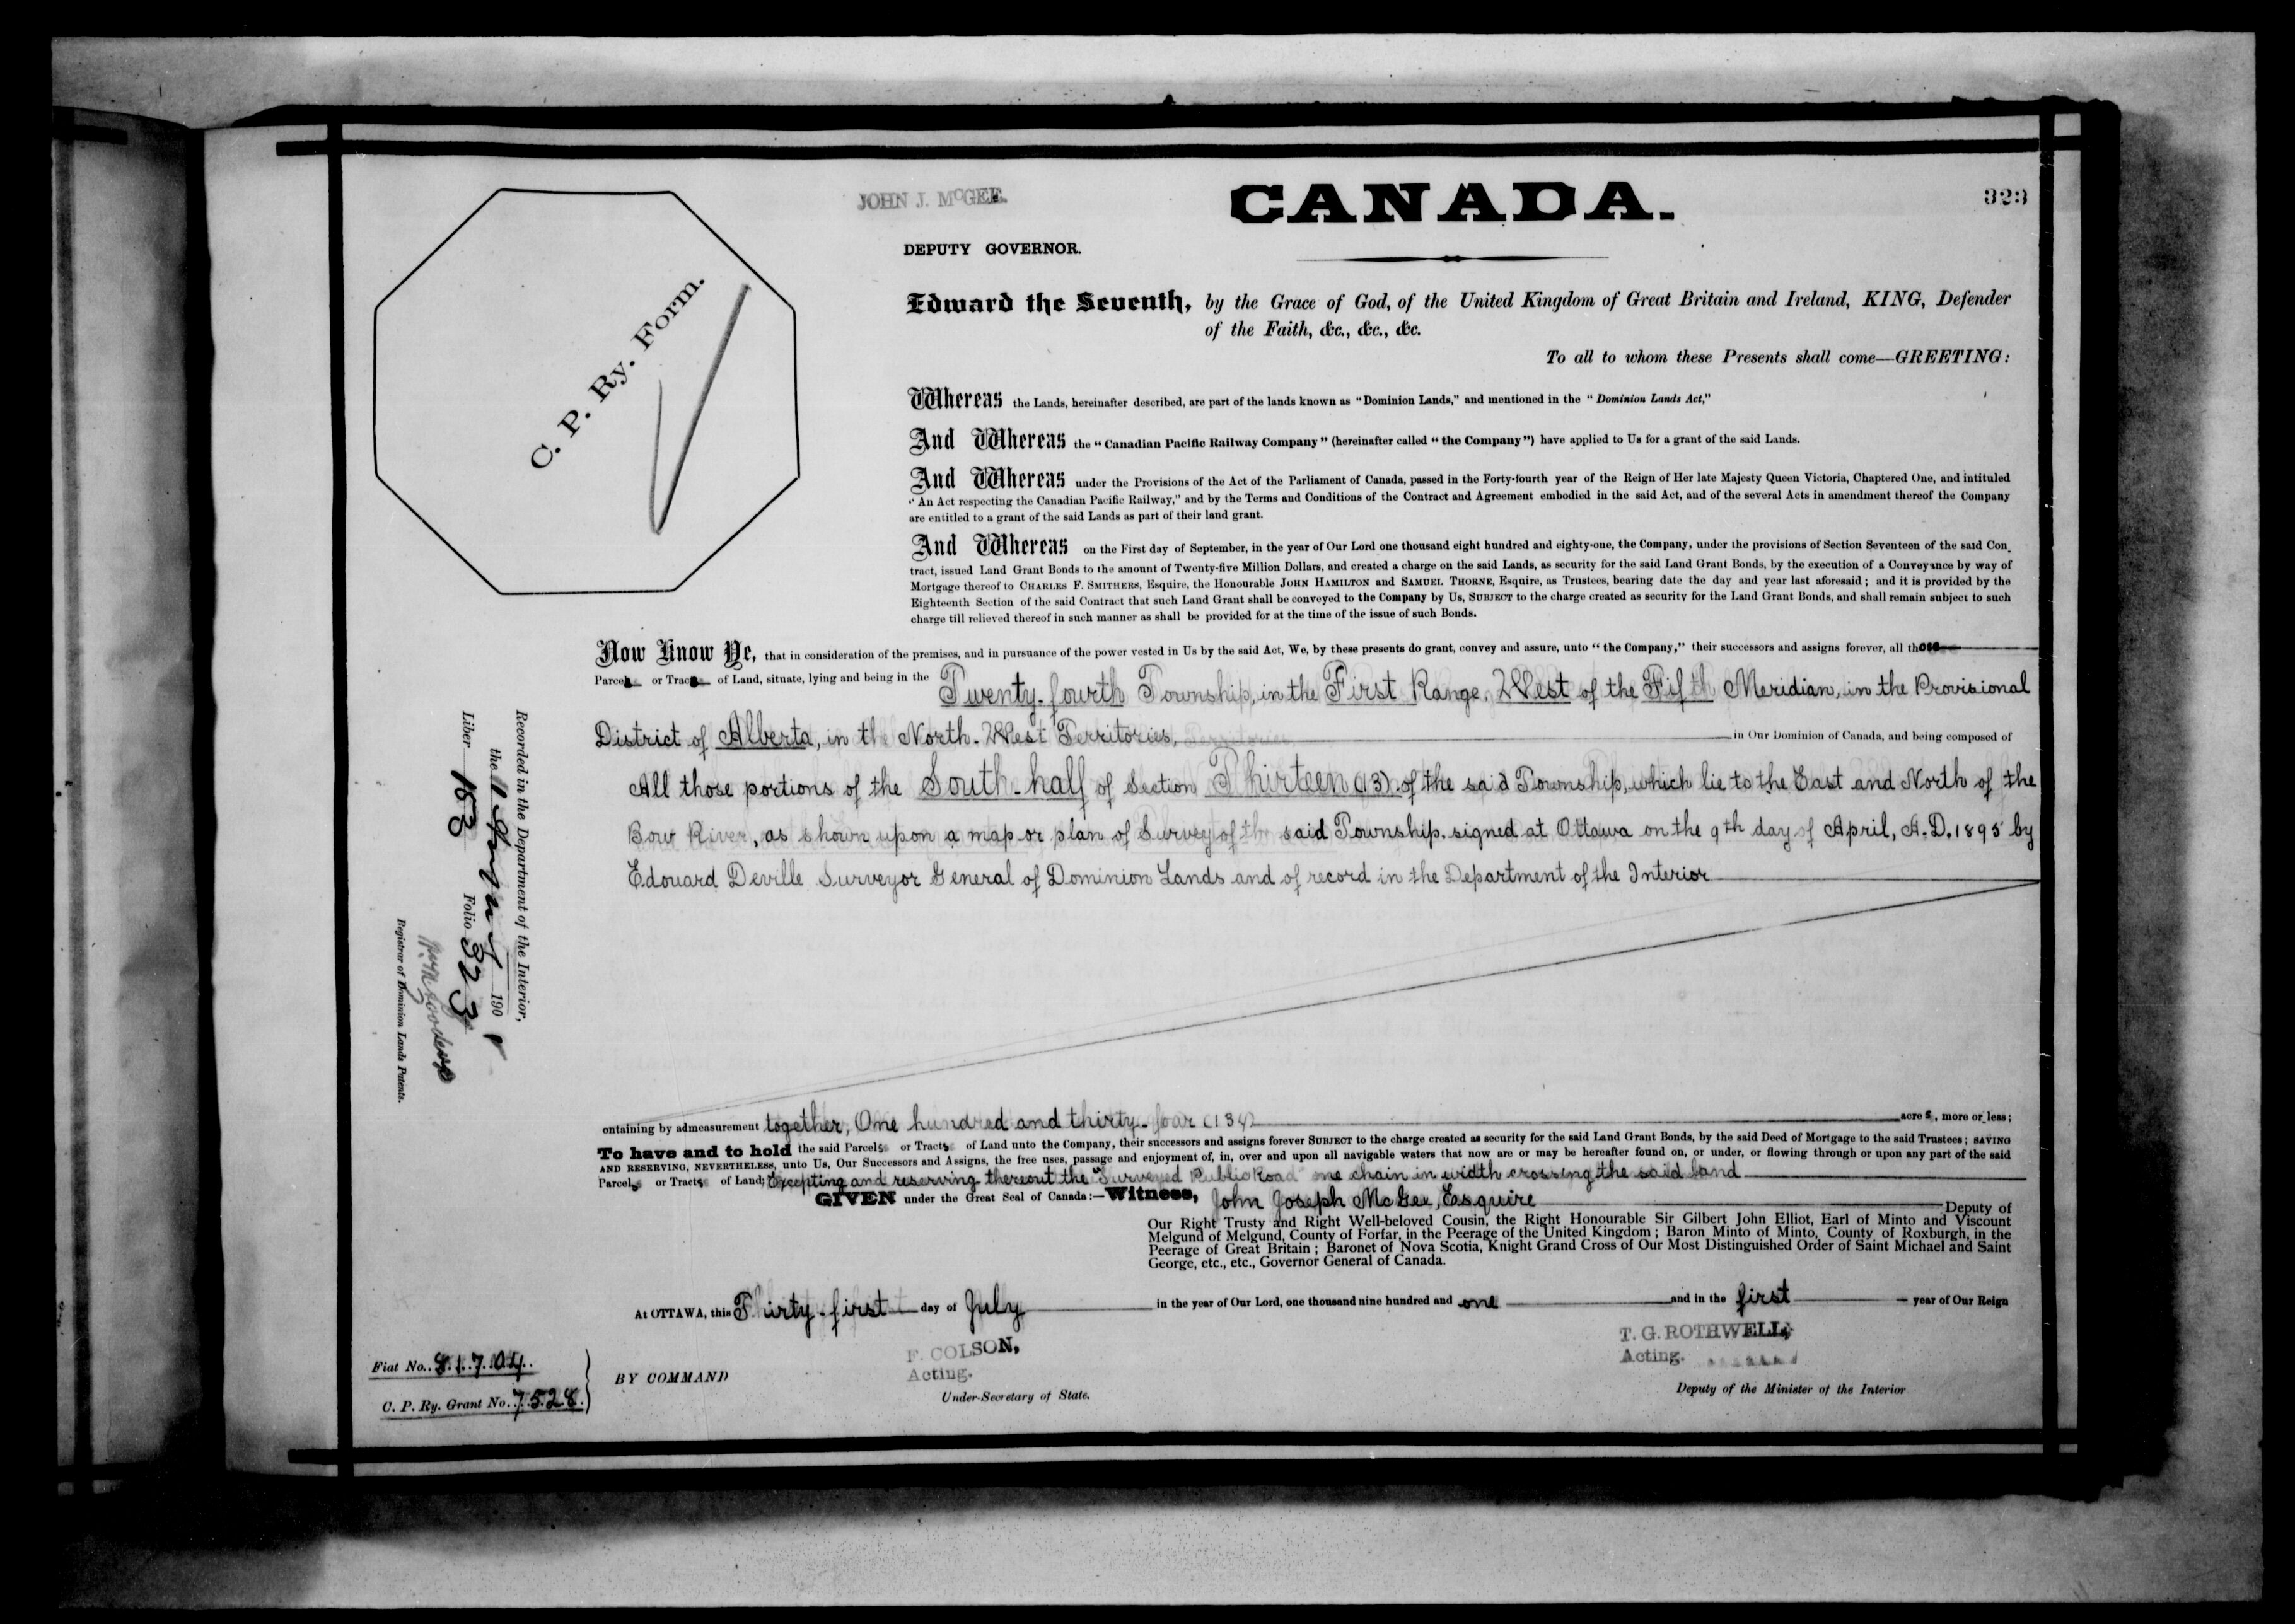 JOHN J. McGEE.
CANADA.
323
DEPUTY GOVERNOR.
C. P. Ry. Form.
Edward the Seventh, by the Grace of God, of the United Kingdom of Great Britain and Ireland, KING, Defender
of the Faith, &c., &c., &c.
To all to whom these Presents shall come—GREETING:
Whereas the Lands, hereinafter described, are part of the lands known as "Dominion Lands," and mentioned in the "Dominion Lands Act,"
And Whereas the "Canadian Pacific Railway Company" (hereinafter called "the Company") have applied to Us for a grant of the said Lands.
And Whereas under the Provisions of the Act of the Parliament of Canada, passed in the Forty-fourth year of the Reign of Her late Majesty Queen Victoria, Chaptered One, and intituled
"An Act respecting the Canadian Pacific Railway," and by the Terms and Conditions of the Contract and Agreement embodied in the said Act, and of the several Acts in amendment thereof the Company
are entitled to a grant of the said Lands as part of their land grant.
And Whereas on the First day of September, in the year of Our Lord one thousand eight hundred and eighty-one, the Company, under the provisions of Section Seventeen of the said Con-
tract, issued Land Grant Bonds to the amount of Twenty-five Million Dollars, and created a charge on the said Lands, as security for the said Land Grant Bonds, by the execution of a Conveyance by way of
Mortgage thereof to CHARLES F. SMITHERS, Esquire, the Honourable JOHN HAMILTON and SAMUEL THORNE, Esquire, as Trustees, bearing date the day and year last aforesaid; and it is provided by the
Eighteenth Section of the said Contract that such Land Grant shall be conveyed to the Company by Us, SUBJECT to the charge created as security for the Land Grant Bonds, and shall remain subject to such
charge till relieved thereof in such manner as shall be provided for at the time of the issue of such Bonds.
Now Know Ye, that in consideration of the premises, and in pursuance of the power vested in Us by the said Act, We, by these presents do grant, convey and assure, unto "the Company," their successors and assigns forever, all those
Parcels or Tracts of Land, situate, lying and being in the Twenty-fourth Township, in the First Range, West of the Fifth Meridian, in the Provisional
District of Alberta, in the North-West Territories, in Our Dominion of Canada, and being composed of
All those portions of the South-half of Section Thirteen (13) of the said Township, which lie to the East and North of the
Bow River, as shown upon a map or plan of Survey of the said Township signed at Ottawa on the 9th day of April, A.D. 1895 by
Edouard Deville Surveyor General of Dominion Lands and of record in the Department of the Interior
ontaining by admeasurement together, One hundred and thirty-four (134) acres, more or less;
To have and to hold the said Parcels or Tracts of Land unto the Company, their successors and assigns forever SUBJECT to the charge created as security for the said Land Grant Bonds, by the said Deed of Mortgage to the said Trustees; SAVING
AND RESERVING, NEVERTHELESS, unto Us, Our Successors and Assigns, the free uses, passage and enjoyment of, in, over and upon all navigable waters that now are or may be hereafter found on, or under, or flowing through or upon any part of the said
Parcels or Tracts of Land; Excepting and reserving thereout the "Surveyed Public Road" one chain in width crossing the said land
GIVEN under the Great Seal of Canada:—Witness, John Joseph McGee, Esquire Deputy of
Our Right Trusty and Right Well-beloved Cousin, the Right Honourable Sir Gilbert John Elliot, Earl of Minto and Viscount
Melgund of Melgund, County of Forfar, in the Peerage of the United Kingdom; Baron Minto of Minto, County of Roxburgh, in the
Peerage of Great Britain; Baronet of Nova Scotia, Knight Grand Cross of Our Most Distinguished Order of Saint Michael and Saint
George, etc., etc., Governor General of Canada.
At OTTAWA, this Thirty-first day of July in the year of Our Lord, one thousand nine hundred and one and in the first year of Our Reign
F. COLSON,
Acting.
Under-Secretary of State.
T. G. ROTHWELL,
Acting.
Deputy of the Minister of the Interior
BY COMMAND
Fiat No. 81704
C. P. Ry. Grant No. 7528
Recorded in the Department of the Interior,
the 11 August 1901
Liber 153 Folio 323
Registrar of Dominion Lands Patents.